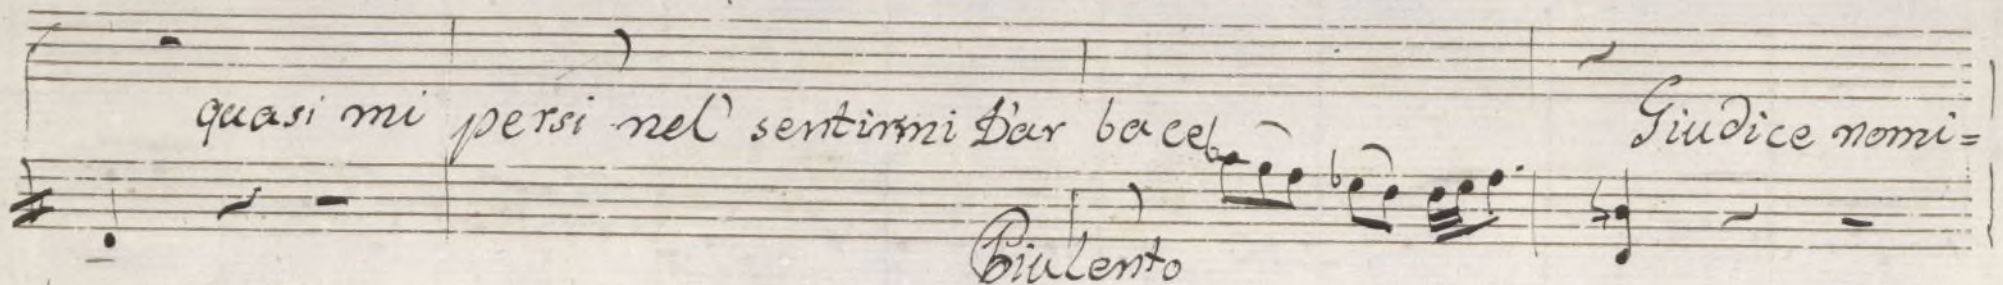 quasi mi persi nel sentirmi Dar bace Giudice nomi=
Piu Lento